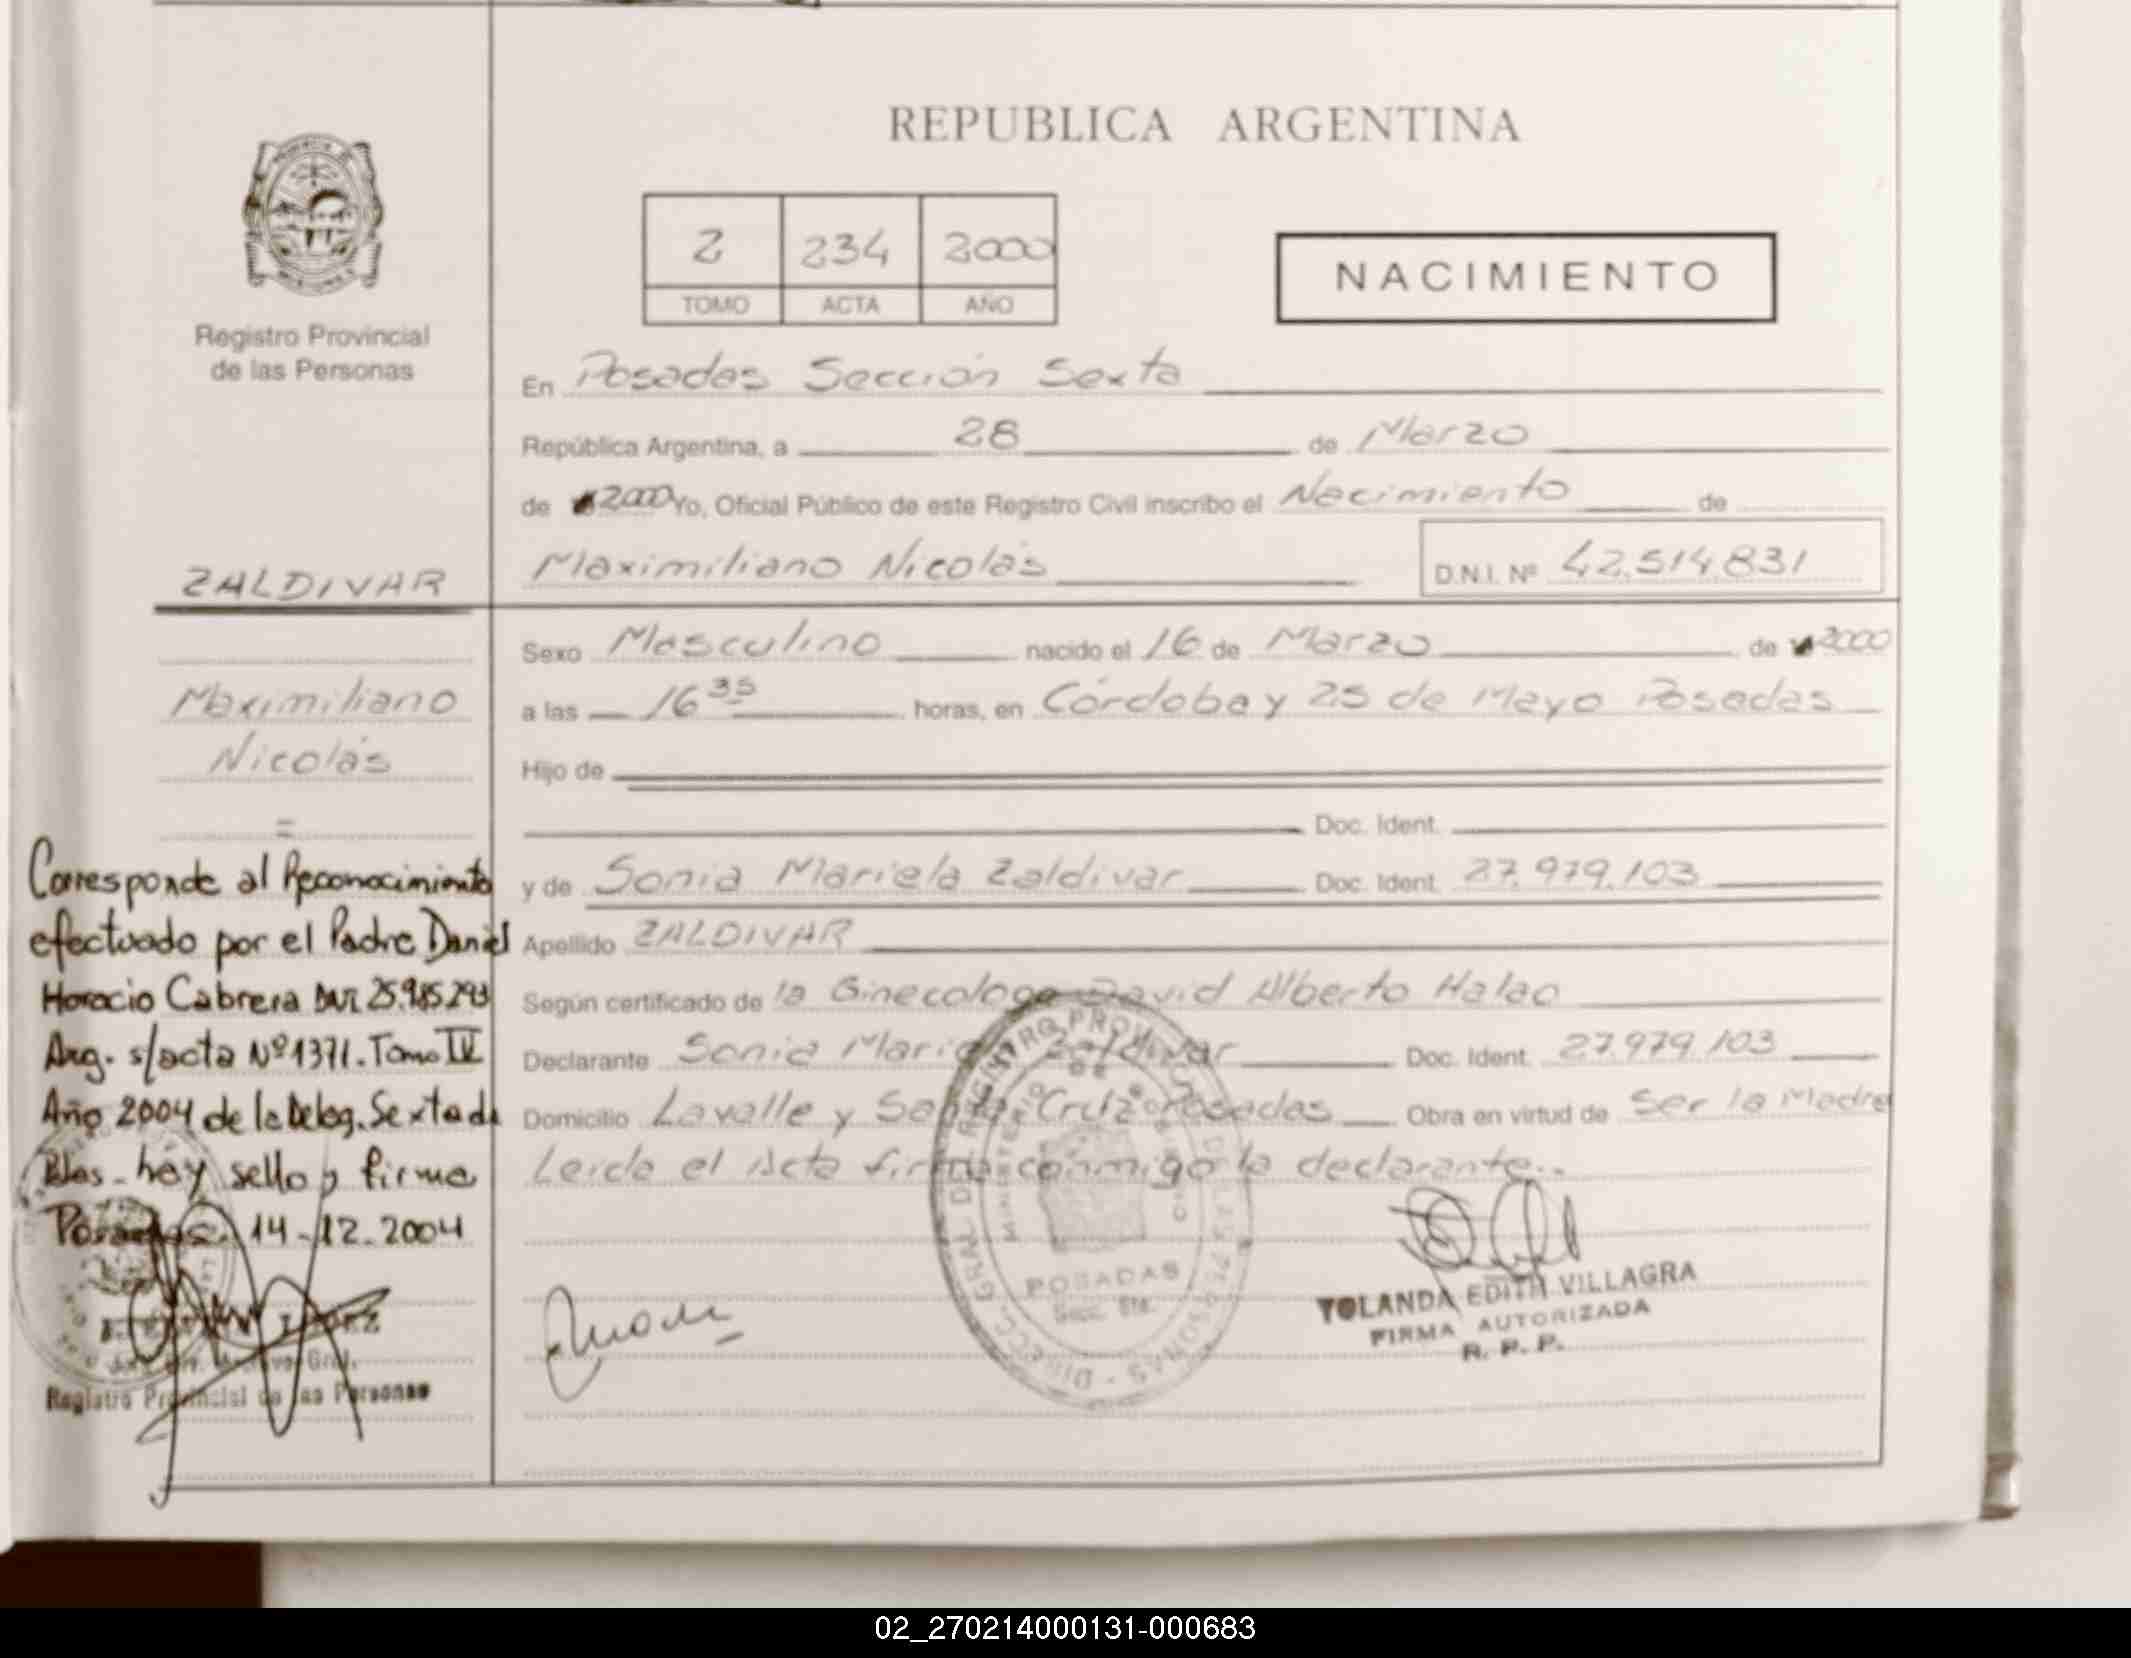 REPUBLICA ARGENTINA
2 234 2000
TOMO ACTA AÑO
NACIMIENTO
Registro Provincial
de las Personas
En Posadas Sección Sexta
República Argentina, a 28 de Marzo
de 2000 Yo, Oficial Público de este Registro Civil inscribo el Nacimiento de
Maximiliano Nicolás D.N.I. Nº 42.514.831
ZALDIVAR
Sexo Masculino nacido el 16 de Marzo de 2000
Maximiliano
a las 16 35 horas, en Córdoba y 25 de Mayo Posadas
Nicolás
Hijo de
=
Doc. Ident.
y de Sonia Mariela Zaldivar Doc. Ident. 27.979.103
Apellido ZALDIVAR
Según certificado de la Ginecologo David Alberto Halac
Declarante Sonia Mariela Zaldivar Doc. Ident. 27.979.103
Domicilio Lavalle y Santa Cruz Posadas Obra en virtud de Ser la Madre
Leida el Acta firma conmigo la declarante..
Corresponde al Reconocimiento
efectuado por el Padre Daniel
Horacio Cabrera DNI 25.985.293
Arg. s/acta Nº 1371. Tomo IV
Año 2004 de la Deleg. Sexta de
hay sello y firma
Posadas. 14-12-2004
Registro Provincial de las Personas
DIRECC. GRAL DEL REGISTRO PROVINCIAL DE LAS PERSONAS
MINISTERIO DE GOBIERNO
POSADAS
Secc. 6ta.
YOLANDA EDITH VILLAGRA
FIRMA AUTORIZADA
R. P. P.
02_270214000131-000683